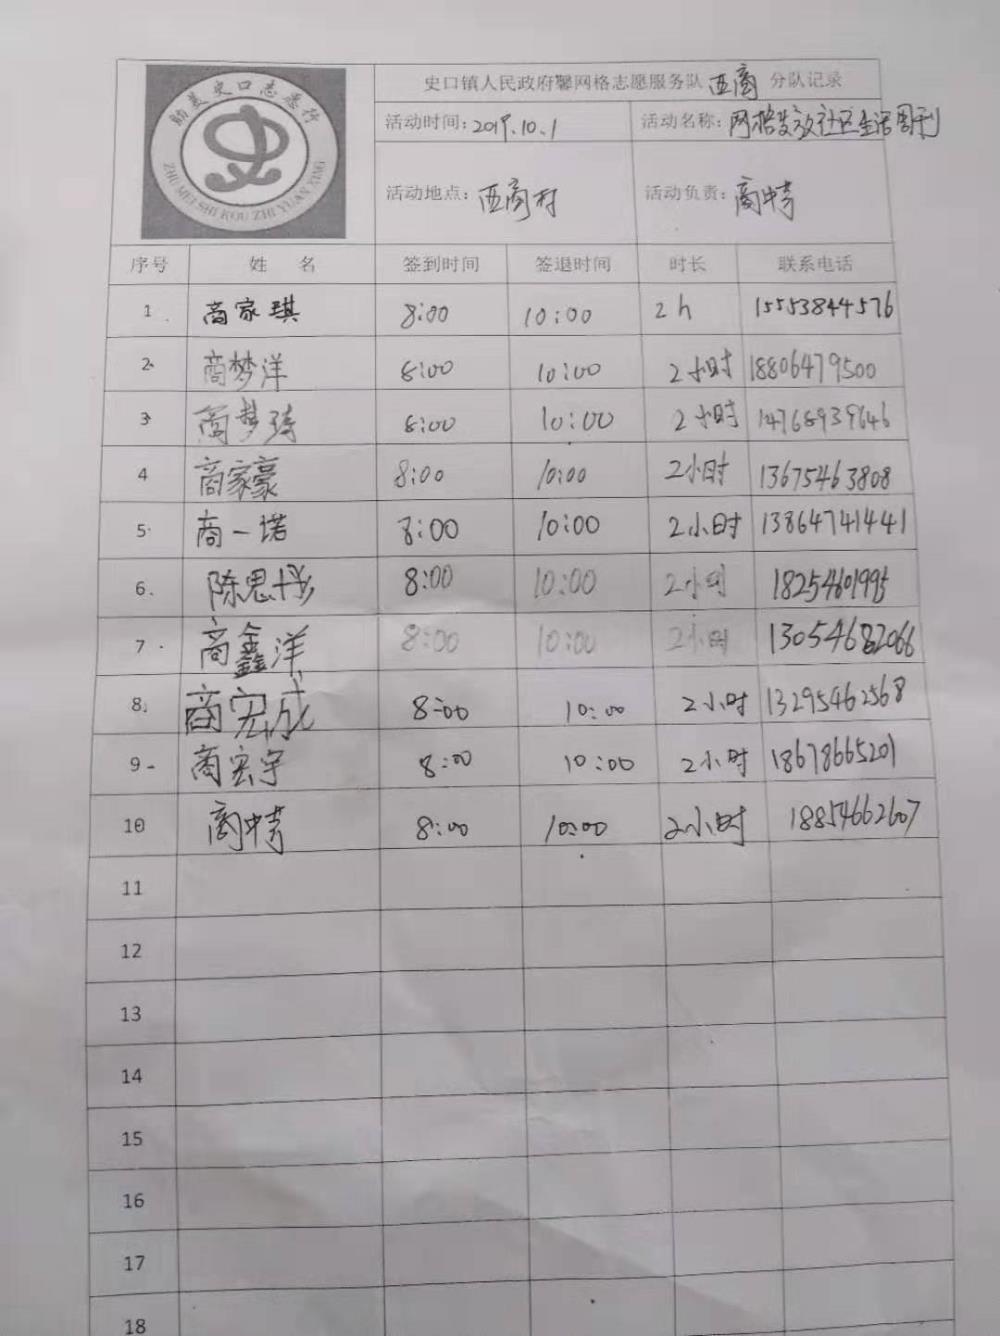 助美史口志愿行
ZHU MEI SHI KOU ZHI YUAN XING
史口镇人民政府馨网格志愿服务队 西商 分队记录
活动时间: 2019.10.1 活动名称: 网格发放社区生活周刊
活动地点: 西商村 活动负责: 商中青
序号 姓 名 签到时间 签退时间 时长 联系电话
1 商家琪 8:00 10:00 2h 15553844576
2 商梦洋 8:00 10:00 2小时 18806479500
3 商梦琦 8:00 10:00 2小时 14768939646
4 商家豪 8:00 10:00 2小时 13675463808
5 商一诺 8:00 10:00 2小时 13864741441
6 陈思彤 8:00 10:00 2小时 18254601995
7 商鑫洋 8:00 10:00 2小时 13054682066
8 商宏成 8:00 10:00 2小时 13295462568
9 商宏宇 8:00 10:00 2小时 18678665201
10 商中青 8:00 10:00 2小时 18854662607
11
12
13
14
15
16
17
18